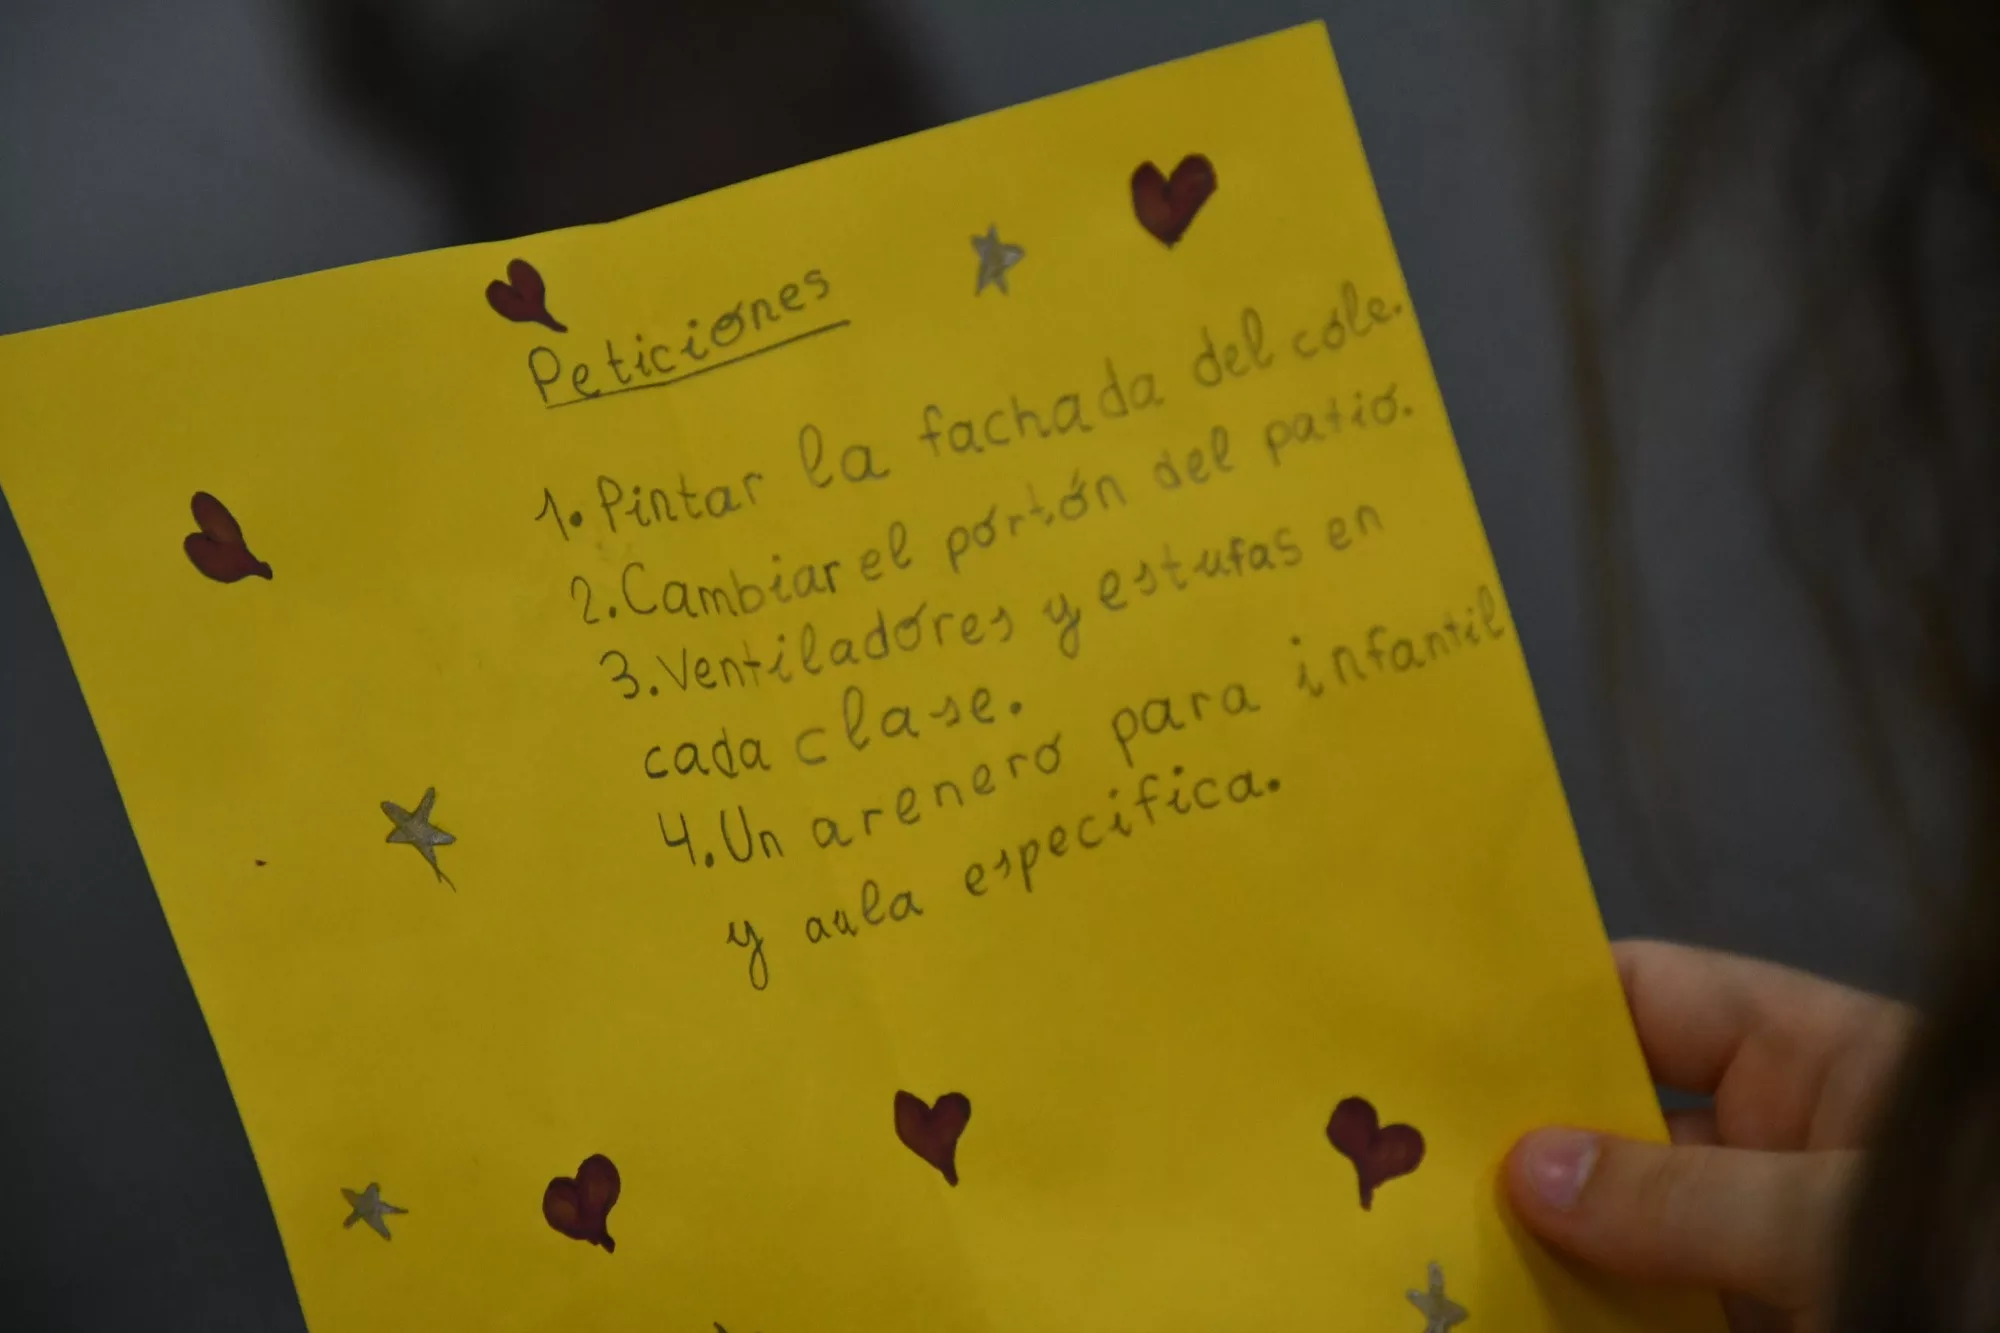 Peticiones
1. Pintar la fachada del cole.
2. Cambiar el portón del patio.
3. Ventiladores y estufas en
cada clase.
4. Un arenero para infantil
y aula especifica.